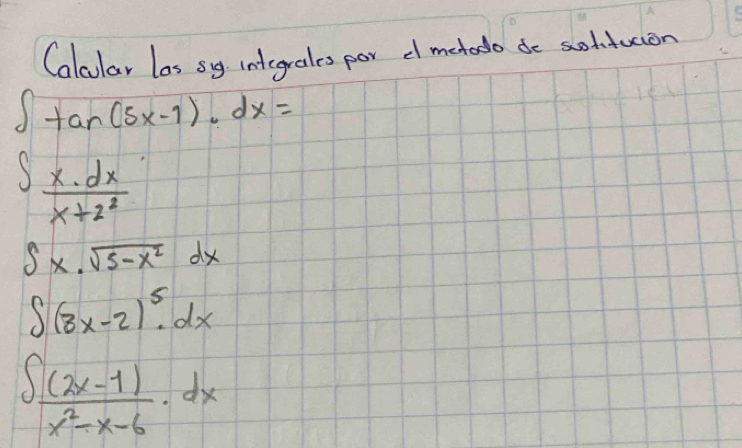 Calcular las sig. integrales por el metodo de sustitucion
∫ tan(5x-1). dx =
∫ x.dx / x+2²
∫ x.√5-x² dx
∫(3x-2)⁵. dx
∫ (2x-1) / x²-x-6 . dx